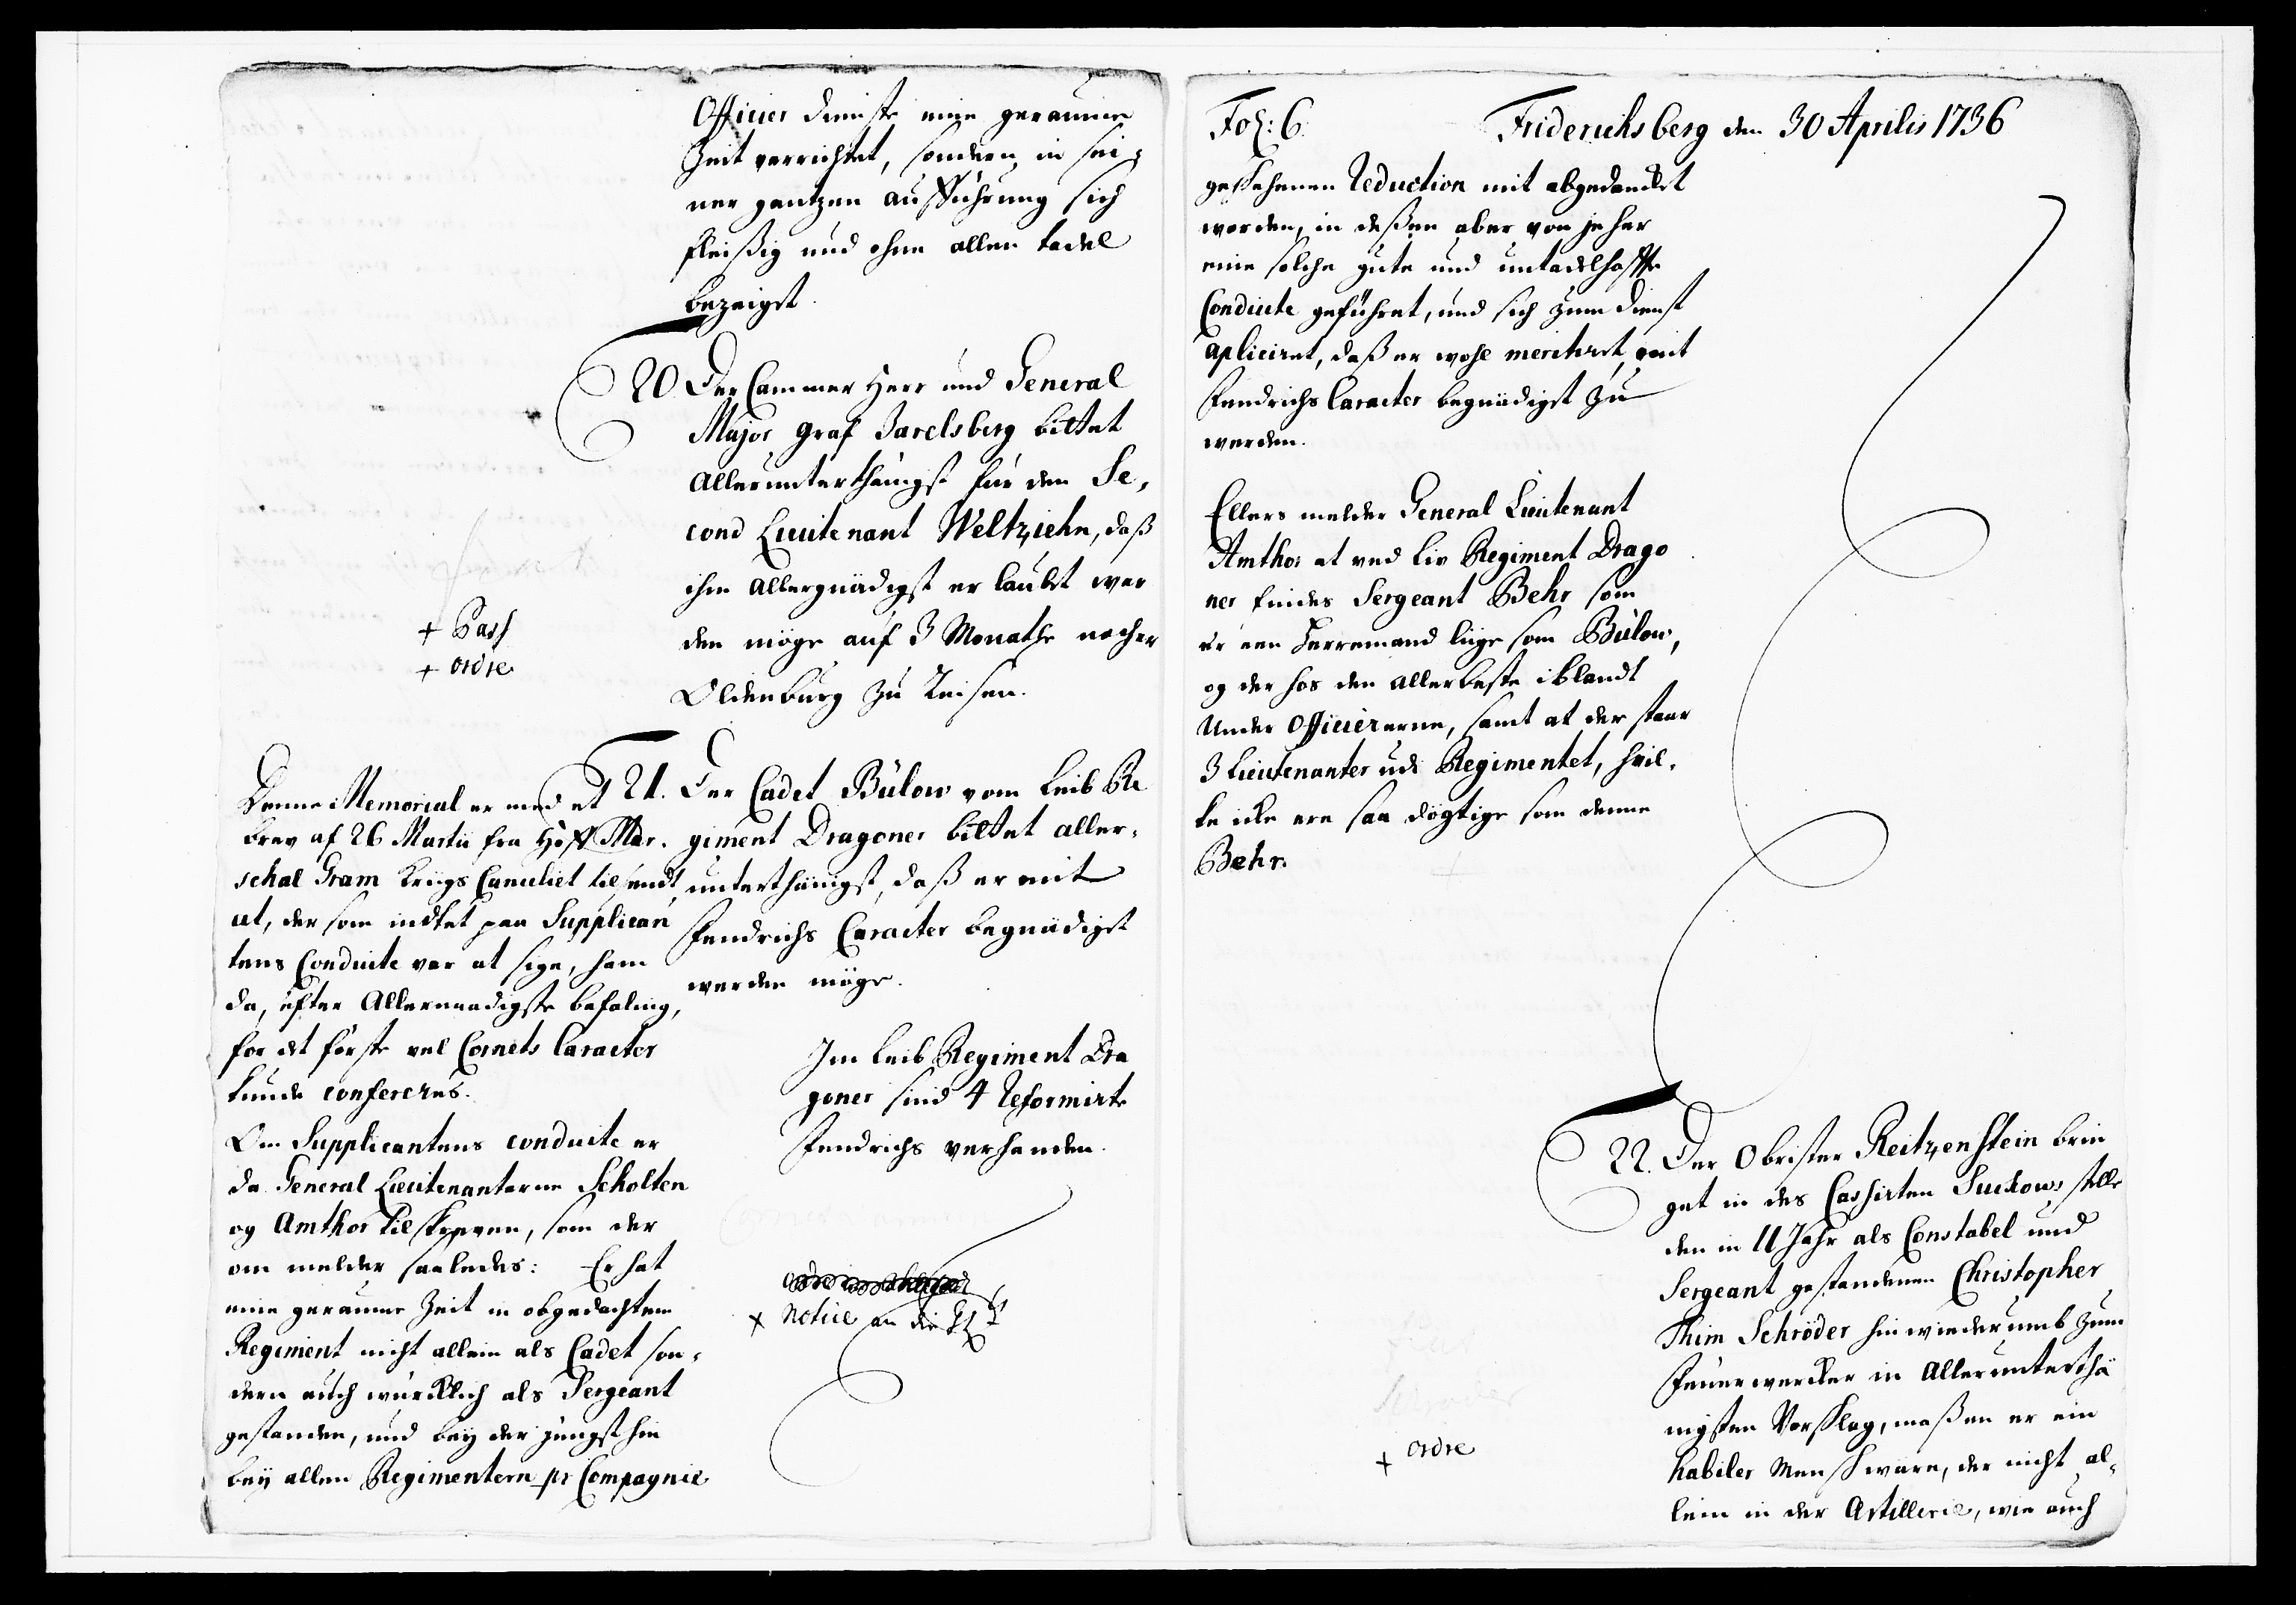 Officier dienste eine geraume
Zeit verrichtet, sondern in sei-
ner gantzen aufführung sich
fleißig und ohne allen tadel
bezeiget.
20. Der Cammer Herr und General
Major Graf Jarelsberg bittet
allerunterthänigst für den Se-
cond Lieutenant Weltziehn, daß
ihm allergnädigst erlaubet wer
den möge auf 3 Monathe nacher
Oldenburg zu Reisen.
+ Pass
+ ordre
21. Der Cadet Bülow vom Leib Re
giment Dragoner bittet aller-
unterthänigst, daß er mit
Fendrichs Caracter begnädiget
werden möge.
Im Leib Regiment Dra
goner sind 4 Reformirte
Fendrichs verhanden.
x Notice an die
Denne Memorial er med et
brev af 26 Martii fra Hoff Mar-
schal Gram Krigs Cancelliet tilsendt
at, der som indtet paa Supplican
tens Conduite var at sige, ham
da, efter Allernaadigste befaling,
for det förste vel Cornets Caracter
kunde confereres.
Om Supplicantens conduite er
da General Lieutenanterne Scholten
og Amthor tilskreven, som der
om melder saaledes: Er hat
eine geraume Zeit in obgedachtem
Regiment nicht allein als Cadet son-
dern auch würcklich als Sergeant
gestanden, und bey der jüngsthin
bey allen Regimentern pr Compagnie
Fol: 6.
Friderichsberg den 30 Aprilis 1736
geschehenen Reduction mit abgedancket
worden, in deßen aber von jeher
eine solche gute und untadelhaffte
Conduite geführet, und sich zum dienst
apliciret, daß er wohl meritiret, mit
Fendrichs Caracter begnädiget zu
werden.
Ellers melder General Lieutenant
Amthor at ved Liv Regiment Drago
ner findes Sergeant Behr som
er een Herremand liige som Bülow,
og der hos den allerbeste iblandt
Under Officiererne, samt at der staar
3 Lieutenanter ude Regimentet, hvil-
ke icke ere saa dögtige som denne
Behr.
22. Der Obrister Reitzenstein brin
get in des Cassirten Suckows stelle
den in 11 Jahr als Constabel und
Sergeant gestandenen Christopher
Thim Schröder hinwiederumb zum
Feuerwercker in allerunterthä
nigsten Vorschlag, maßen er ein
habiler Mensch wäre, der nicht al-
lein in der Artillerie, wie auch
+ ordre